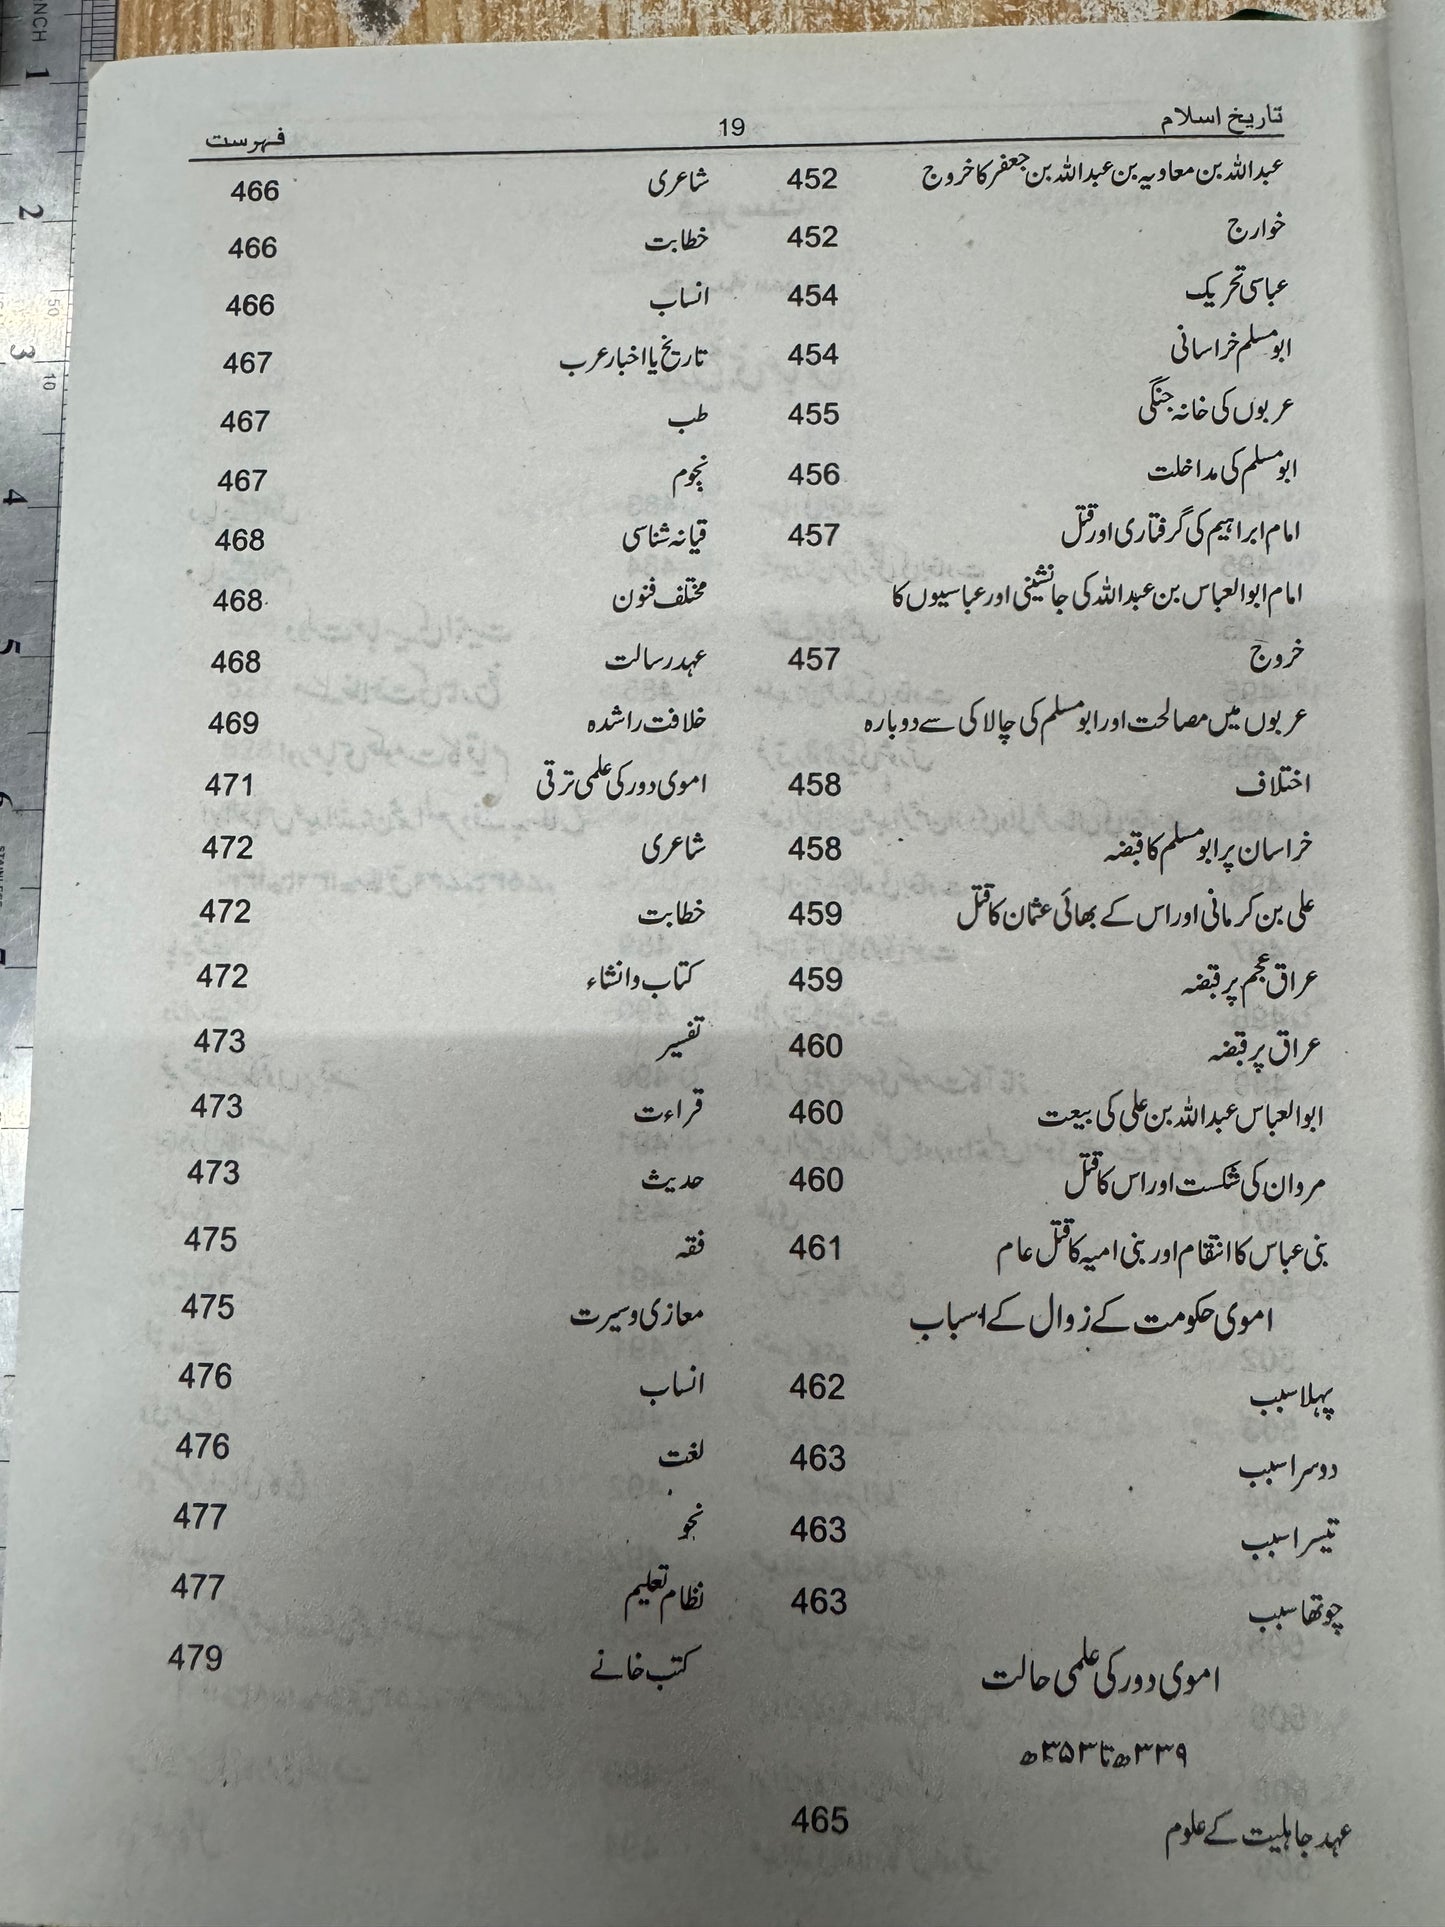 تاریخ اسلام 19 فہرست
عبداللہ بن معاویہ بن عبداللہ بن جعفر کا خروج 452
خوارج 452
عباسی تحریک 454
ابومسلم خراسانی 454
عربوں کی خانہ جنگی 455
ابومسلم کی مداخلت 456
امام ابراہیم کی گرفتاری اور قتل 457
امام ابوالعباس بن عبداللہ کی جانشینی اور عباسیوں کا
خروج 457
عربوں میں مصالحت اور ابومسلم کی چالاکی سے دوبارہ
اختلاف 458
خراسان پر ابومسلم کا قبضہ 458
علی بن کرمانی اور اس کے بھائی عثمان کا قتل 459
عراق عجم پر قبضہ 459
عراق پر قبضہ 460
ابوالعباس عبداللہ بن علی کی بیعت 460
مروان کی شکست اور اس کا قتل 460
بنی عباس کا انتقام اور بنی امیہ کا قتل عام 461
اموی حکومت کے زوال کے اسباب
پہلا سبب 462
دوسرا سبب 463
تیسرا سبب 463
چوتھا سبب 463
اموی دور کی علمی حالت
۳۳۹ھ تا ۳۵۳ھ
عہد جاہلیت کے علوم 465
شاعری 466
خطابت 466
انساب 466
تاریخ یا اخبار عرب 467
طب 467
نجوم 467
قیانہ شناسی 468
مختلف فنون 468
عہد رسالت 468
خلافت راشدہ 469
اموی دور کی علمی ترقی 471
شاعری 472
خطابت 472
کتاب و انشاء 472
تفسیر 473
قراءت 473
حدیث 473
فقہ 475
معازی و سیرت 475
انساب 476
لغت 476
نحو 477
نظام تعلیم 477
کتب خانے 479